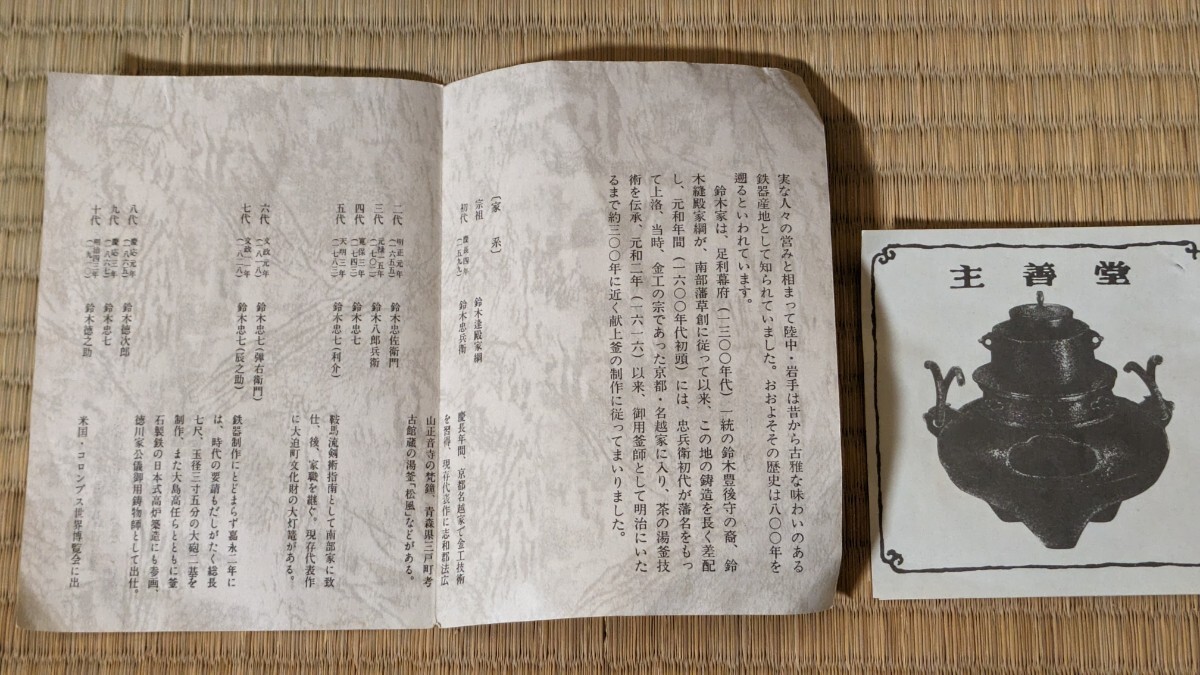 実な人々の営みと相まって陸中・岩手は昔から古雅な味わいのある
鉄器産地として知られていました。おおよその歴史は八〇〇年を
遡るといわれています。
鈴木家は、足利幕府(一三〇〇年代)一統の鈴木豊後守の裔、鈴
木縫殿家綱が、南部藩草創に従って以来、この地の鋳造を長く差配
し、元和年間(一六〇〇年代初頭)には、忠兵衛初代が藩名をもっ
て上洛、当時、金工の宗であった京都・名越家に入り、茶の湯釜技
術を伝承、元和二年(一六一六)以来、御用釜師として明治にいた
るまで約三〇〇年に近く献上釜の制作に従ってまいりました。
〔家 系〕
宗祖 鈴木逢殿家綱
初代 慶長四年(一五九九) 鈴木忠兵衛
慶長年間、京都名越家で金工技術
を習得、現存代表作に志和郡法広
山正音寺の梵鐘、青森県三戸町考
古館蔵の湯釜「松風」などがある。
二代 明正元年 鈴木忠佐衛門
三代 元禄一五年(一七〇二) 鈴木八郎兵衛
四代 寛保三年(一七四三) 鈴木忠七
五代 天明三年(一七八三) 鈴木忠七(利介)
鞍馬流剣術指南として南部家に致
仕、後、家職を継ぐ。現存代表作
に大迫町文化財の大灯篭がある。
六代 文政元年(一八一八) 鈴木忠七(弾右衛門)
七代 文政一一年 鈴木忠七(辰之助)
鉄器制作にとどまらず嘉永二年に
は、時代の要請もだしがたく総長
七尺、玉径三寸五分の大砲二基を
制作、また大島高任らとともに釜
石製鉄の日本式高炉築造にも参画、
徳川家公儀御用鋳物師として出仕。
八代 慶応元年(一八六五) 鈴木徳次郎
九代 慶応三年(一八六七) 鈴木忠七
十代 明治四三年 鈴木徳之助
米国・コロンブス世界博覧会に出
主善堂